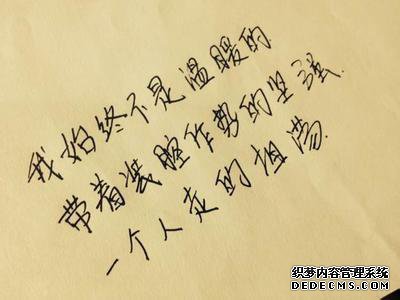 我始终不是温暖的
带着装腔作势的坚强.
一个人走的坦荡.
织梦内容管理系统
DEDECMS.COM